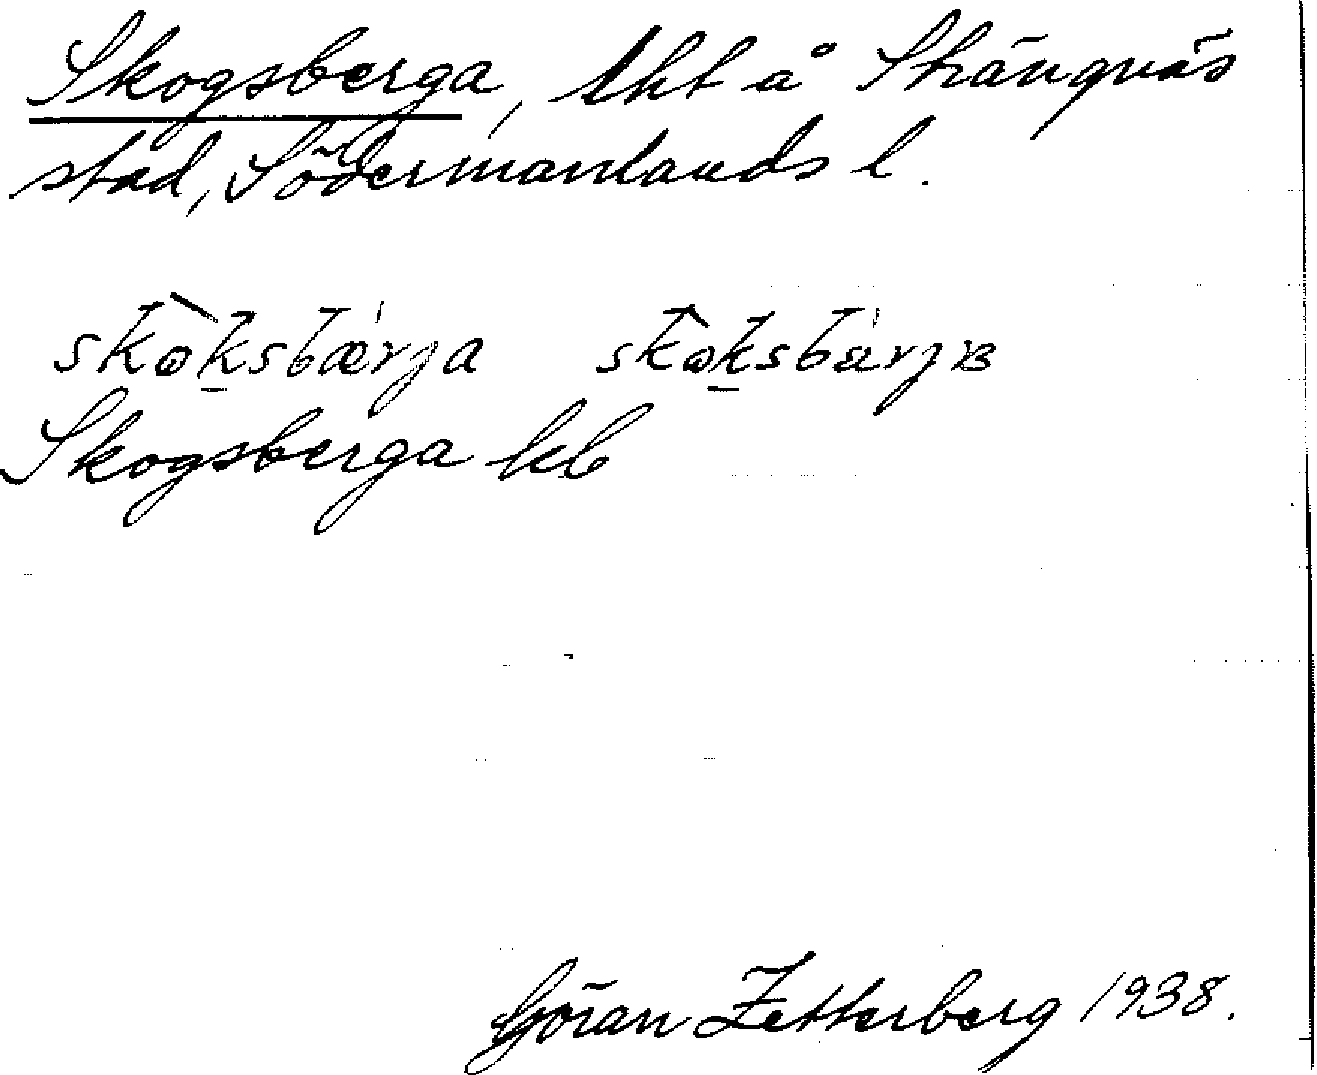 Skogsberga, lht å Strängnäs
stad, Södermanlands l.
skòksbær̍ja skòksbær̍jɐ
Skogsberga kb
Göran Zetterberg 1938.